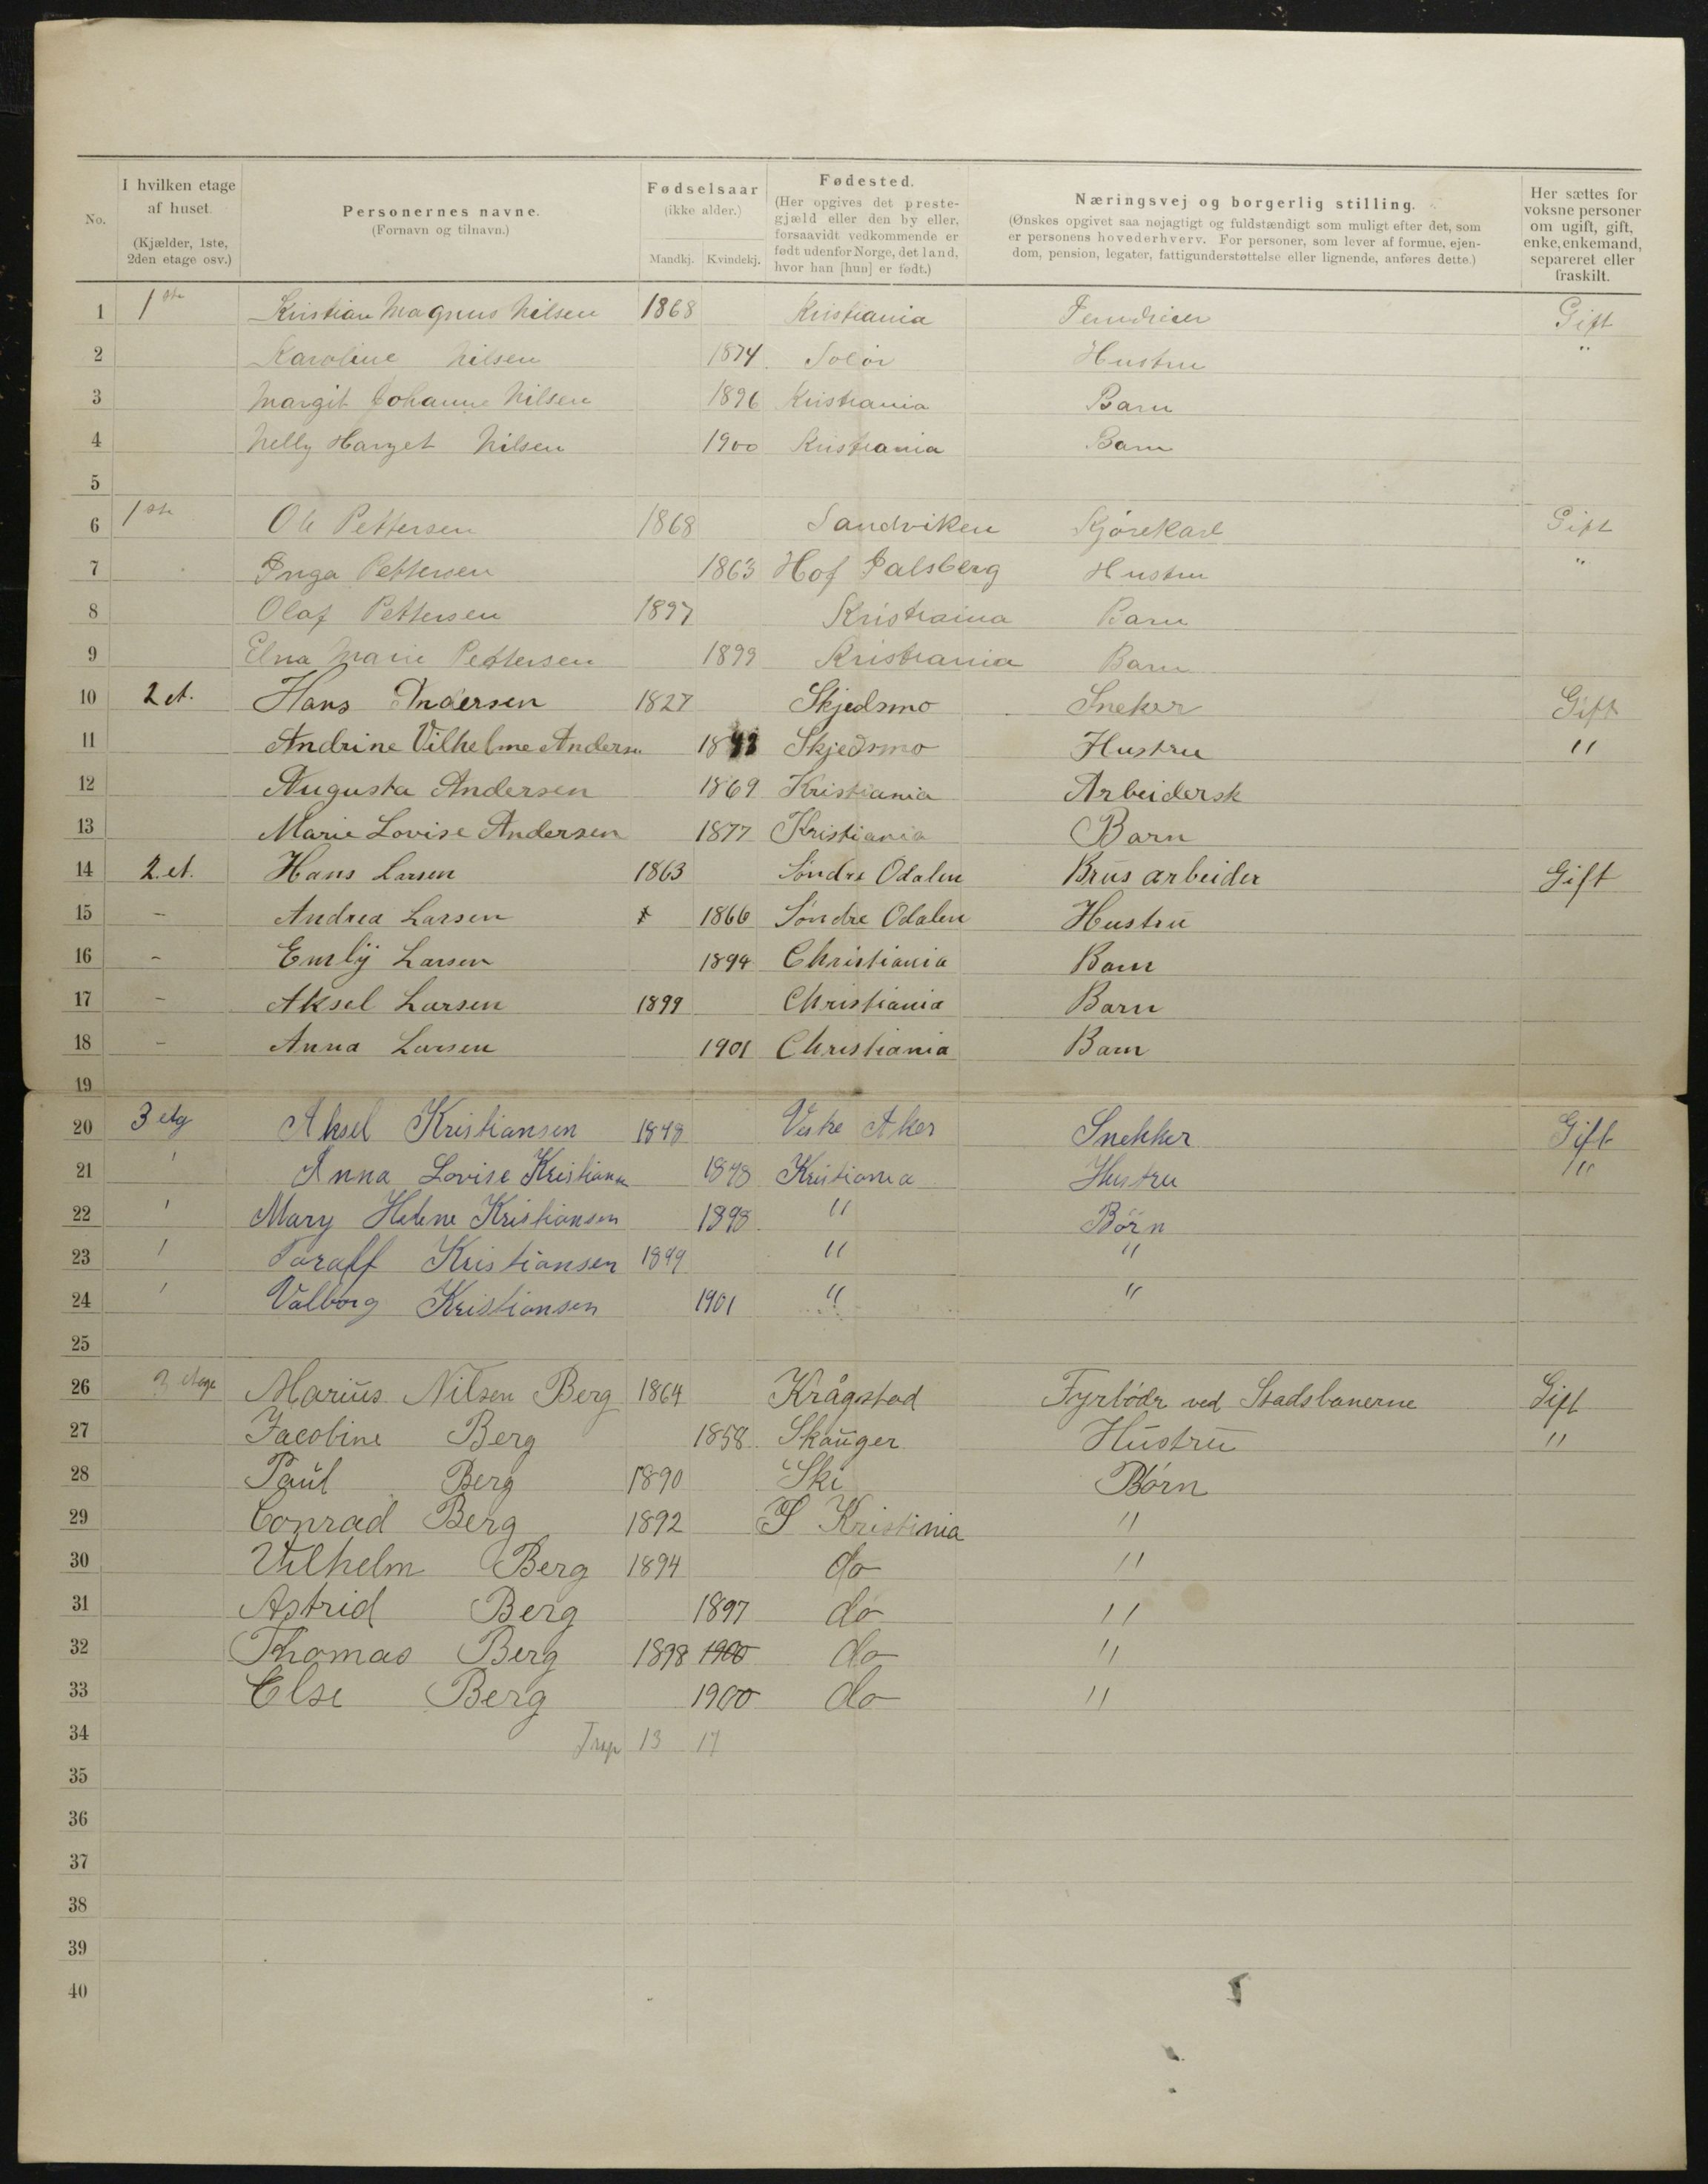 No.
I hvilken etage af huset. (Kjælder, 1ste, 2den etage osv.)
Personernes navne. (Fornavn og tilnavn.)
Fødselsaar (ikke alder.) Mandkj. Kvindekj.
Fødested. (Her opgives det prestegjæld eller den by eller, forsaavidt vedkommende er født udenfor Norge, det land, hvor han [hun] er født.)
Næringsvej og borgerlig stilling. (Ønskes opgivet saa nøjagtigt og fuldstændigt som muligt efter det, som er personens hovederhverv. For personer, som lever af formue, ejendom, pension, legater, fattigunderstøttelse eller lignende, anføres dette.)
Her sættes for voksne personer om ugift, gift, enke, enkemand, separeret eller fraskilt.
1 1ste Kristian Magnus Nilsen 1868 Kristiania Gift
2 Karoline Nilsen 1874 Solør Hustru "
3 Margit Johanne Nilsen 1896 Kristiania Barn
4 Nelly Nilsen 1900 Kristiania Barn
5
6 1ste Ole Pettersen 1868 Sandviken Kjørekarl Gift
7 Inga Pettersen 1863 Hof Hustru "
8 Olaf Pettersen 1897 Kristiania Barn
9 Elna Marie Pettersen 1899 Kristiania Barn
10 2 et. Hans Andersen 1827 Skjedsmo Sneker Gift
11 Andrine Vilhelme Andersen Skjedsmo Hustru "
12 Augusta Andersen 1869 Kristiania Arbeidersk
13 Marie Lovise Andersen 1877 Kristiania Barn
14 2. et. Hans Larsen 1863 Søndre Odalen Brus arbeider Gift
15 - Andrea Larsen 1866 Søndre Odalen Hustru
16 - Emly Larsen 1894 Christiania Barn
17 - Aksel Larsen 1899 Christiania Barn
18 - Anna Larsen 1901 Christiania Barn
19
20 3 etg Aksel Kristiansen Vestre Aker Snekker Gift
21 ' Anna Lovise Kristiansen Kristiania Hustru "
22 ' Mary Helene Kristiansen 1898 " Børn
23 ' Kristiansen 1899 " "
24 ' Valborg Kristiansen 1901 " "
25
26 3 etage Marius Nilsen Berg 1864 Krågstad Fyrbødr ved Stadsbanerne Gift
27 Jacobine Berg 1858 Skauger Hustru "
28 Paul Berg 1890 Ski Børn
29 Conrad Berg 1892 Kristinia "
30 Vilhelm Berg 1894 do "
31 Astrid Berg 1897 do "
32 Thomas Berg 1898 1900 do "
33 Else Berg 1900 do "
34 13 17
35
36
37
38
39
40